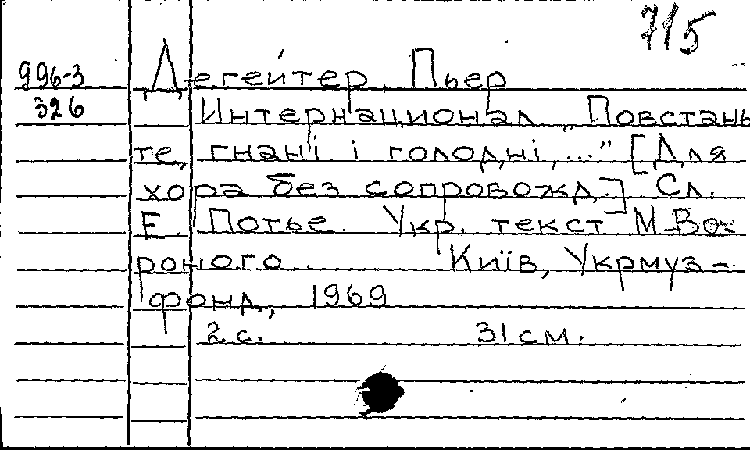 715
996-3 Дегейтер, Пьер
326 Интернационал „Повстань
те, гнані і голодні,..." [Для
хора без сопровожд.] Сл.
Е. Потье. Укр. текст М. Во-
роного. Київ, Укрмуз-
фонд, 1969
2 с. 31 см.